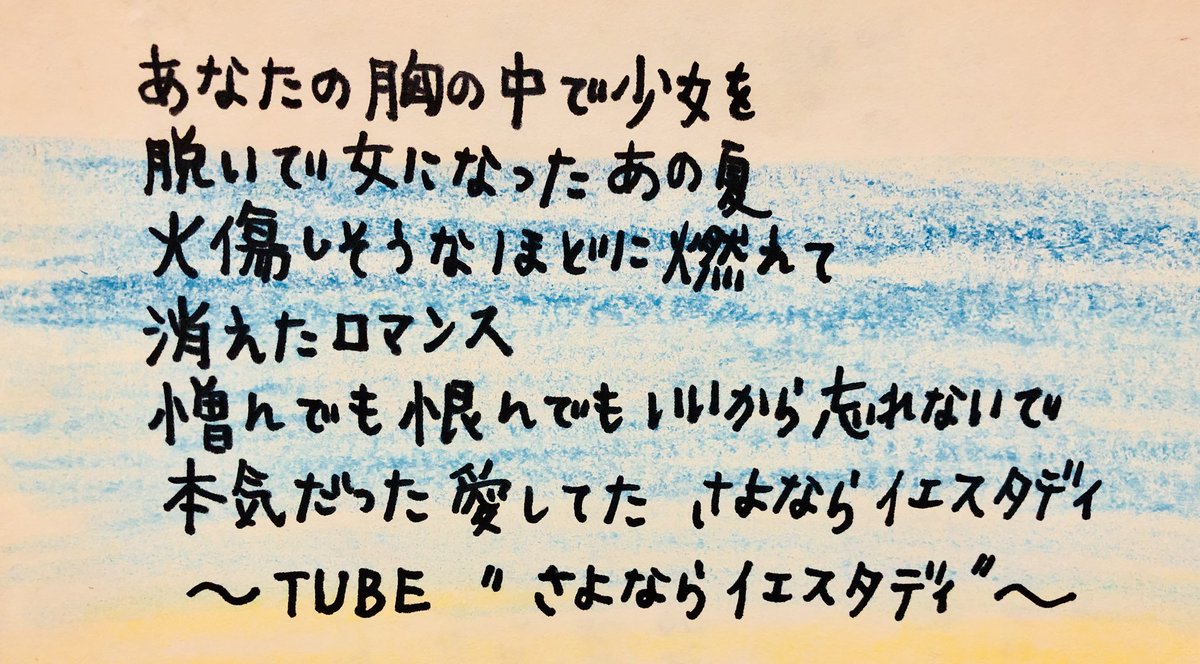 あなたの胸の中で少女を
脱いで女になったあの夏
火傷しそうなほどに燃えて
消えたロマンス
憎んでも恨んでもいいから忘れないで
本気だった愛してた さよならイエスタディ
〜TUBE "さよならイエスタディ"〜